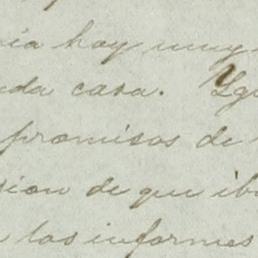 hoy muy
casa. Ygu
promisos de
sion de que ib
los informes